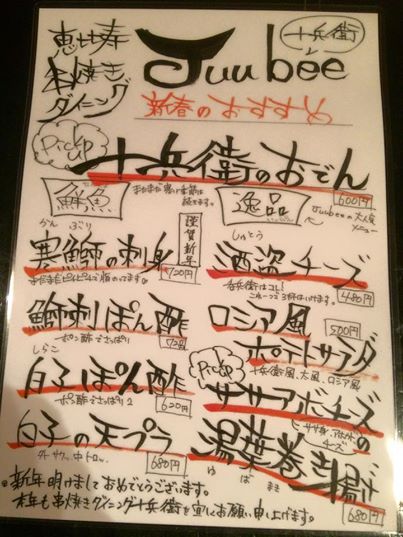 恵比寿
串焼き
ダイニング
Juubee
十兵衛
新春のおすすめ
Pick up
十兵衛のおでん
600円
まだまだ寒い季節は
続きます。
鮮魚
逸品
Juubeeの大人気
メニュー
謹賀新年
かん ぶり
寒鰤の刺身
720円
しゅとう
酒盗チーズ
呑兵衛はコレ!
480円
鰤刺ぽん酢
ポン酢でさっぱり
720円
ロシア風
ポテトサラダ
500円
十兵衛風、大風、ロシア風
しらこ
白子ぽん酢
ポン酢でさっぱり2
620円
Pick up
ササアボチーズ
白子の天プラ
外サク。中トロッ。
680円
湯葉巻き揚げ
ゆ ば まき
680円
※新年明けましておめでとうございます。
本年も串焼きダイニング十兵衛を宜しくお願い申し上げます。